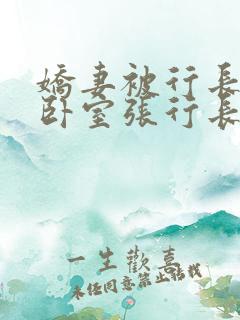 嬌妻被行長
卧室張行長
一生歡喜
未經同意禁止搭我